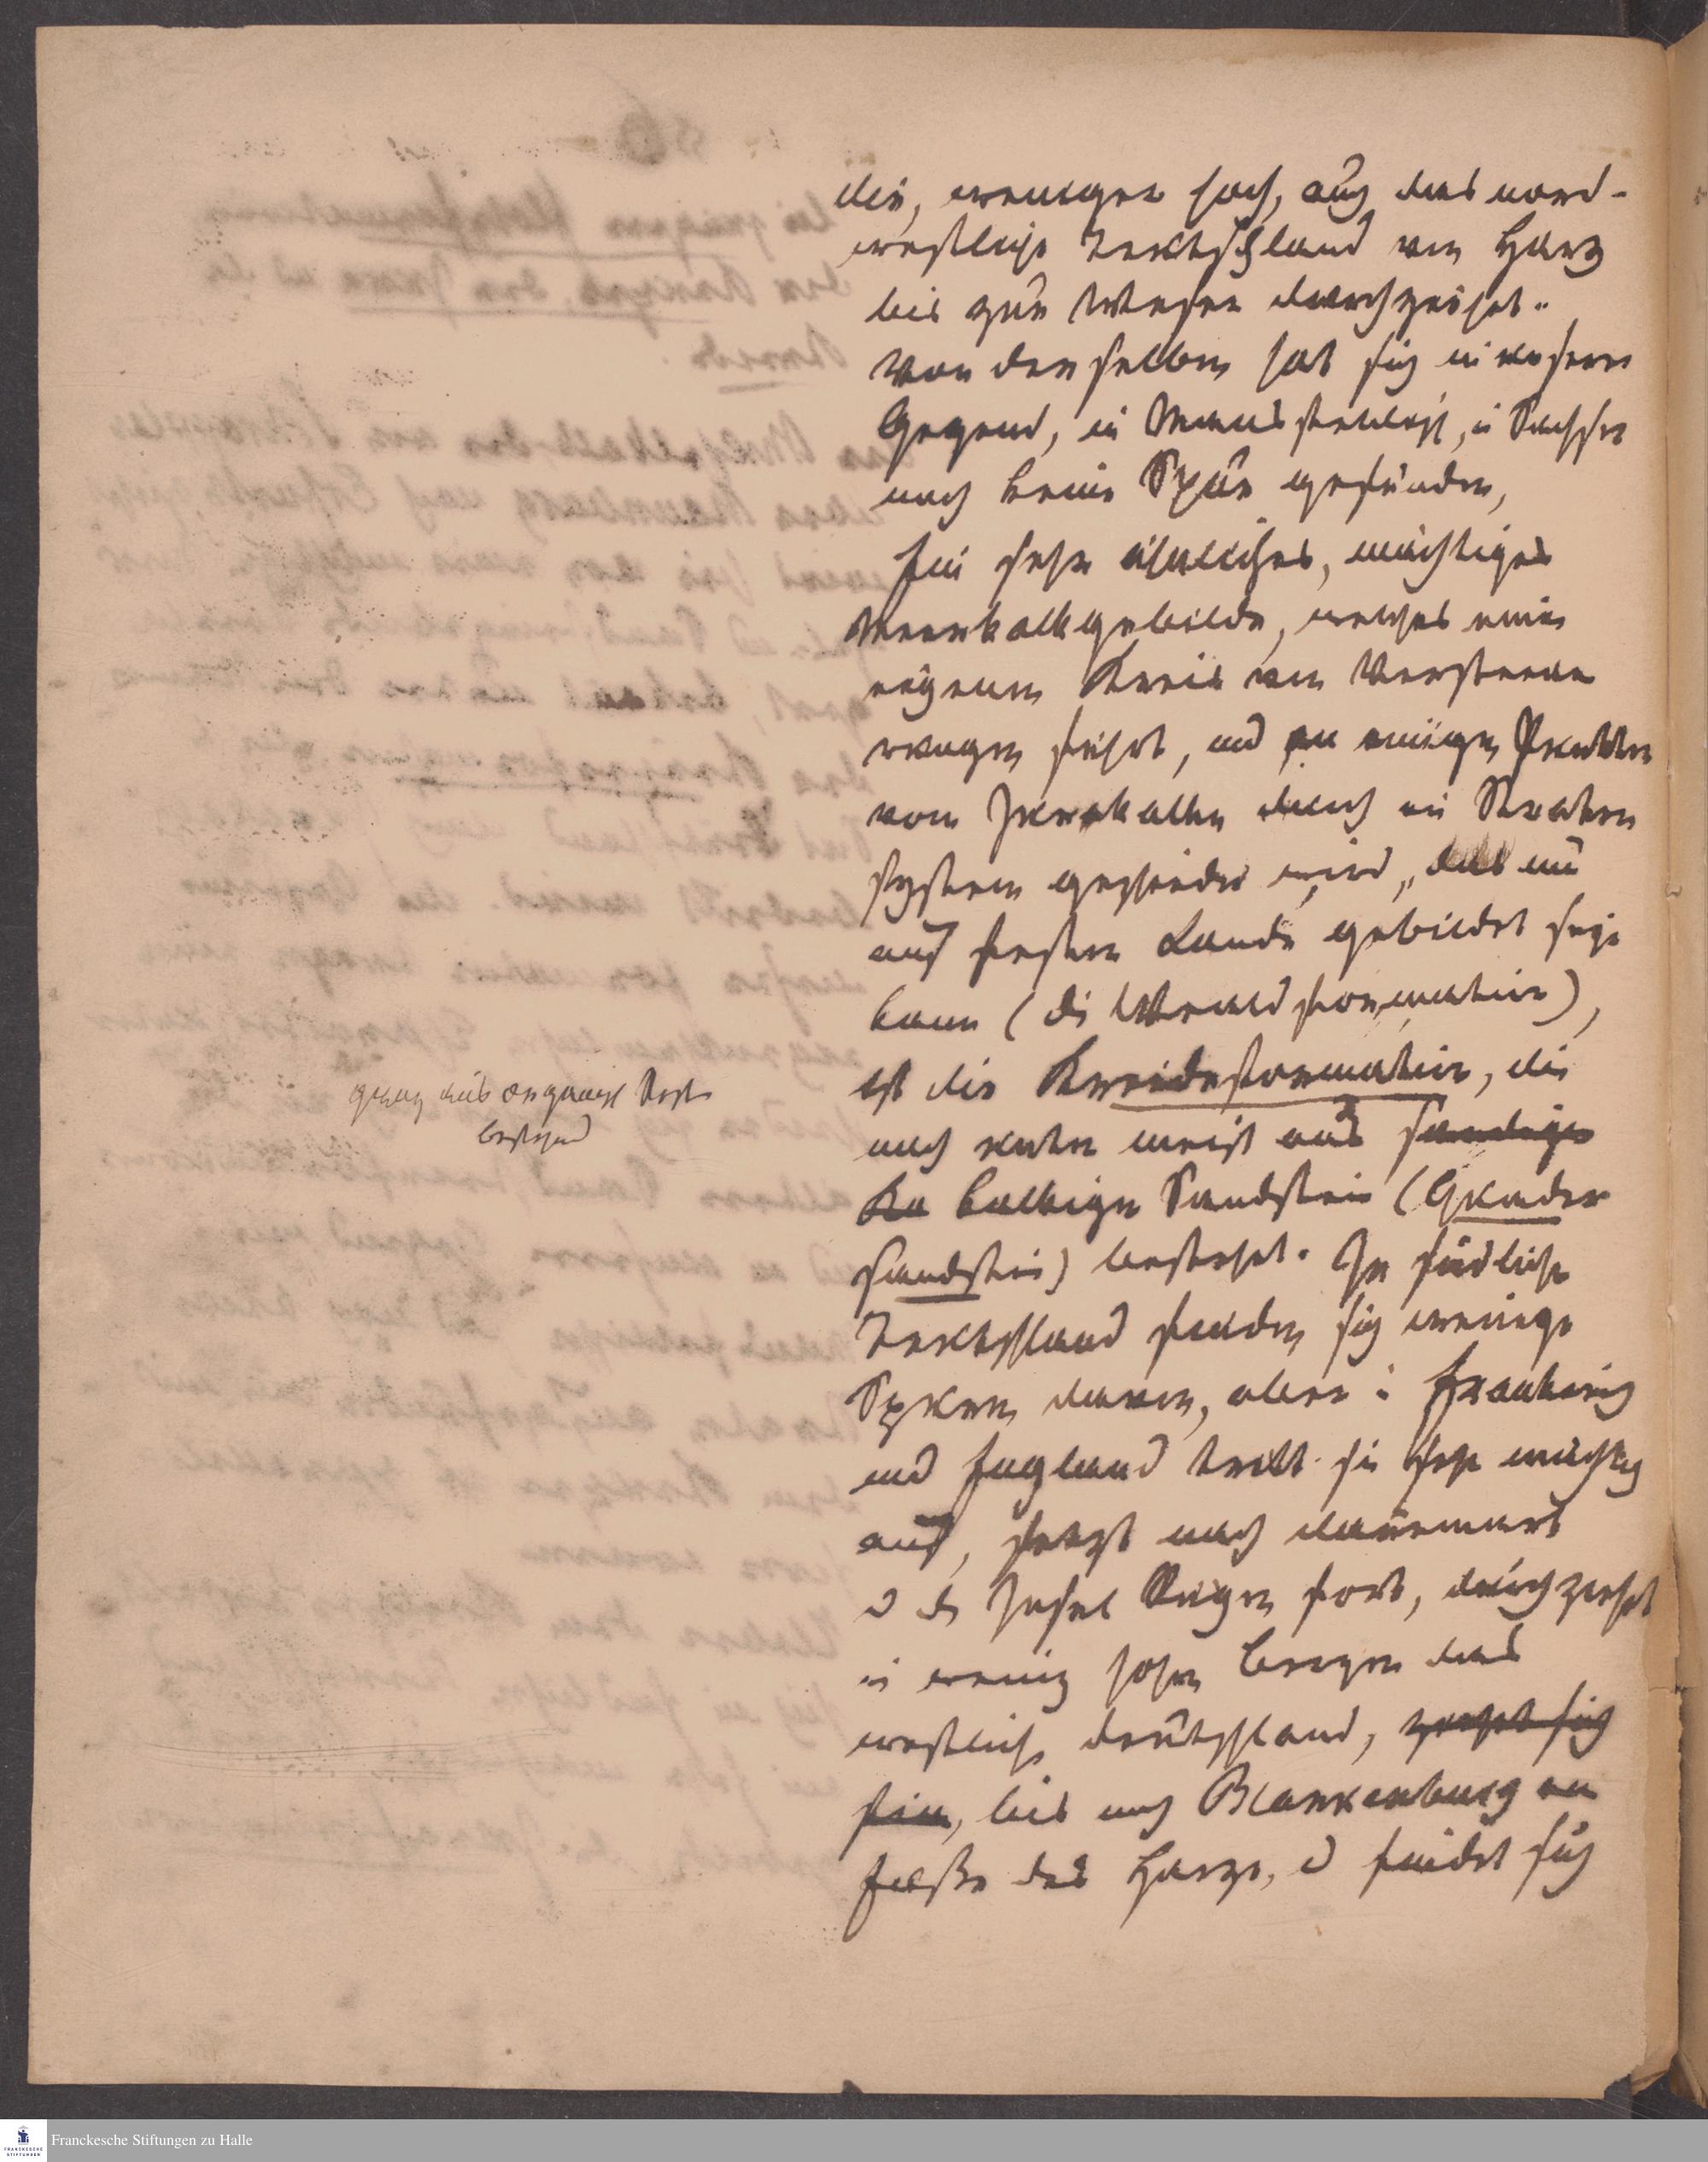 die, weniger hoch, auch das nord-
westliche Teutschland vom Harz
bis zur Weser durchziehet.
Von denselben hat sich in unserer
Gegend, im Mansfeldisch, in Sachsen
noch keine Spur gefunden,
Ein sehr ähnliches, mächtiges
Meerkalkgebilde, welches einen
eignen Kreis von Versteine
rungen führt, und an einigen Punkten
vom Jurakalke durch ein Straten
system geschieden wird, das nur
auf festem Lande gebildet seyn
kann (die Wealdformation),
ist die Kreideformation, die
nach unten meist aus sandigen
Ka kalkigen Sandstein (Quader
sandstein) bestehet. Im südlichen
Teutschland finden sich wenige
Spuren davon, aber in Frankreich
und England tritt sie sehr mächtig
auf, setzt nach Dänemark
u der Insel Rügen fort, durchziehet
in wenig hohen Bergen das
westliche Deutschland, ziehet sich
hin, bis nach Blankenburg am
Fuße des Harzes, u findet sich
ganz aus organisch Reste
bestehend
Franckesche Stiftungen zu Halle